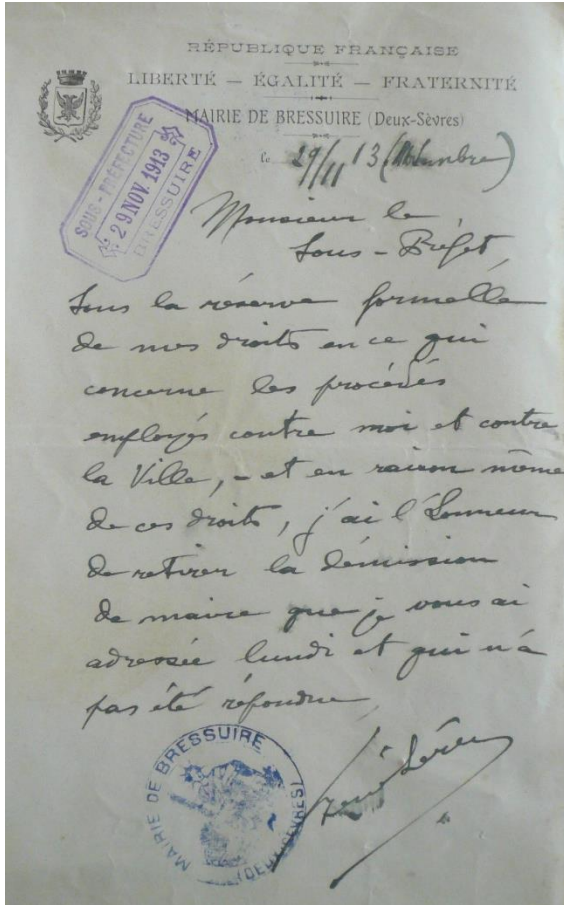 RÉPUBLIQUE FRANÇAISE
LIBERTÉ — ÉGALITÉ — FRATERNITÉ
MAIRIE DE BRESSUIRE (Deux-Sèvres)
SOUS-PRÉFECTURE
29 NOV. 1913
BRESSUIRE
le 29/11 13
Monsieur le
Sous-Préfet,
Sous la réserve formelle
de mes droits en ce qui
concerne les procédés
employés contre moi et contre
la Ville, - et en raison même
de ces droits, j'ai l'honneur
de retirer la démission
de maire que je vous ai
adressée lundi et qui n'a
pas été répondue
René
MAIRIE DE BRESSUIRE
(DEUX-SÈVRES)